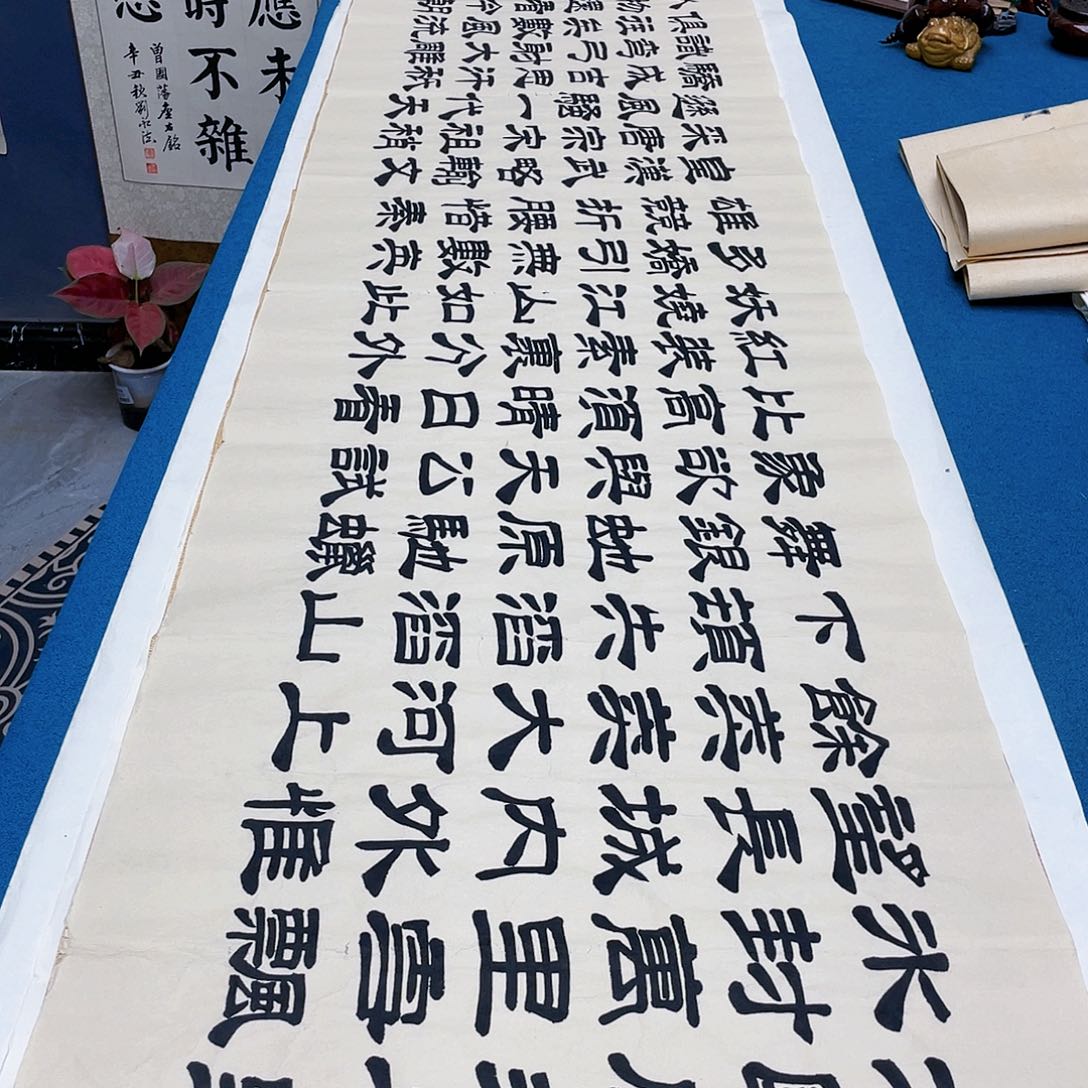 冰封萬里雪飄
望長城內外惟
餘莽莽大河上
下頓失滔滔山
舞銀蛇原馳蠟
象欲與天公試
比高須晴日看
紅裝素裹分外
妖嬈江山如此
多嬌引無數英
雄競折腰惜秦
皇漢武略輸文
采唐宗宋祖稍
遜風騷一代天
驕成吉思汗秖
識彎弓射大雕
俱往矣數風流
應未
時不雜
曾國藩座右銘
辛丑秋劉